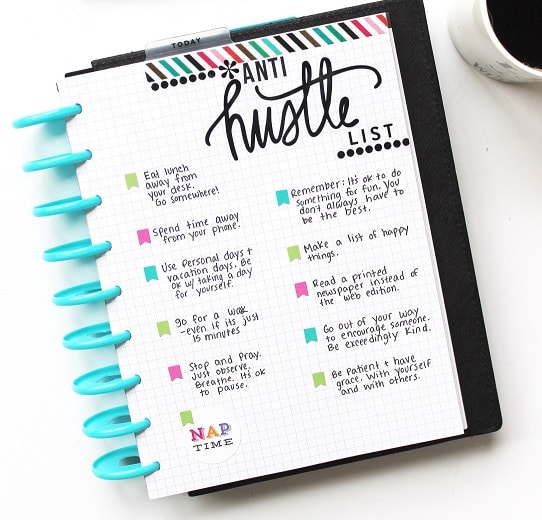 TODAY
*ANTI
hustle
LIST
Eat lunch
away from
your desk.
Go somewhere!
Spend time away
from your phone.
Use personal days +
vacation days. Be
ok w/ taking a day
for yourself.
go for a walk
-even if its just
15 minutes
Stop and Pray.
Just observe.
Breathe. It's ok
to pause.
NAP
TIME
Remember: It's ok to do
something for fun. You
don't always have to
be the best.
Make a list of happy
things.
Read a printed
newspaper instead of
the web edition.
Go out of your way
to encourage someone.
Be exceedingly kind.
Be patient + have
grace. With yourself
and with others.